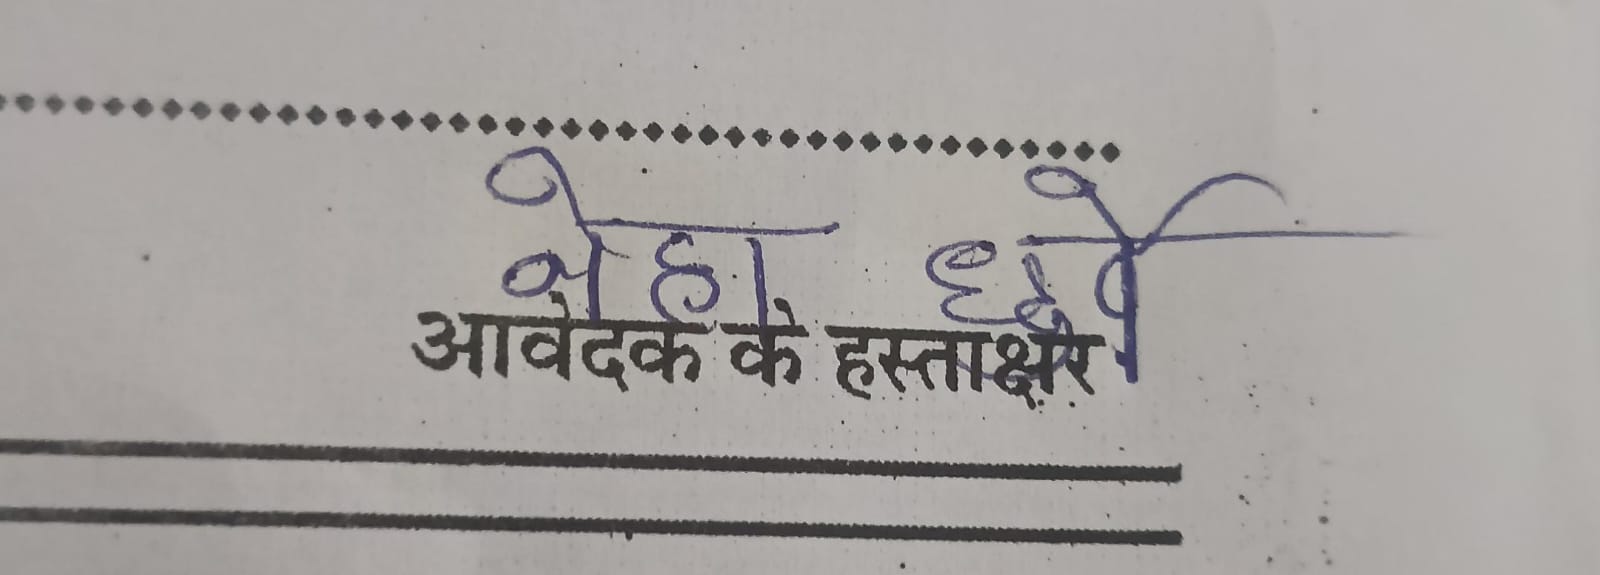 नेहा
आवेदक के हस्ताक्षर